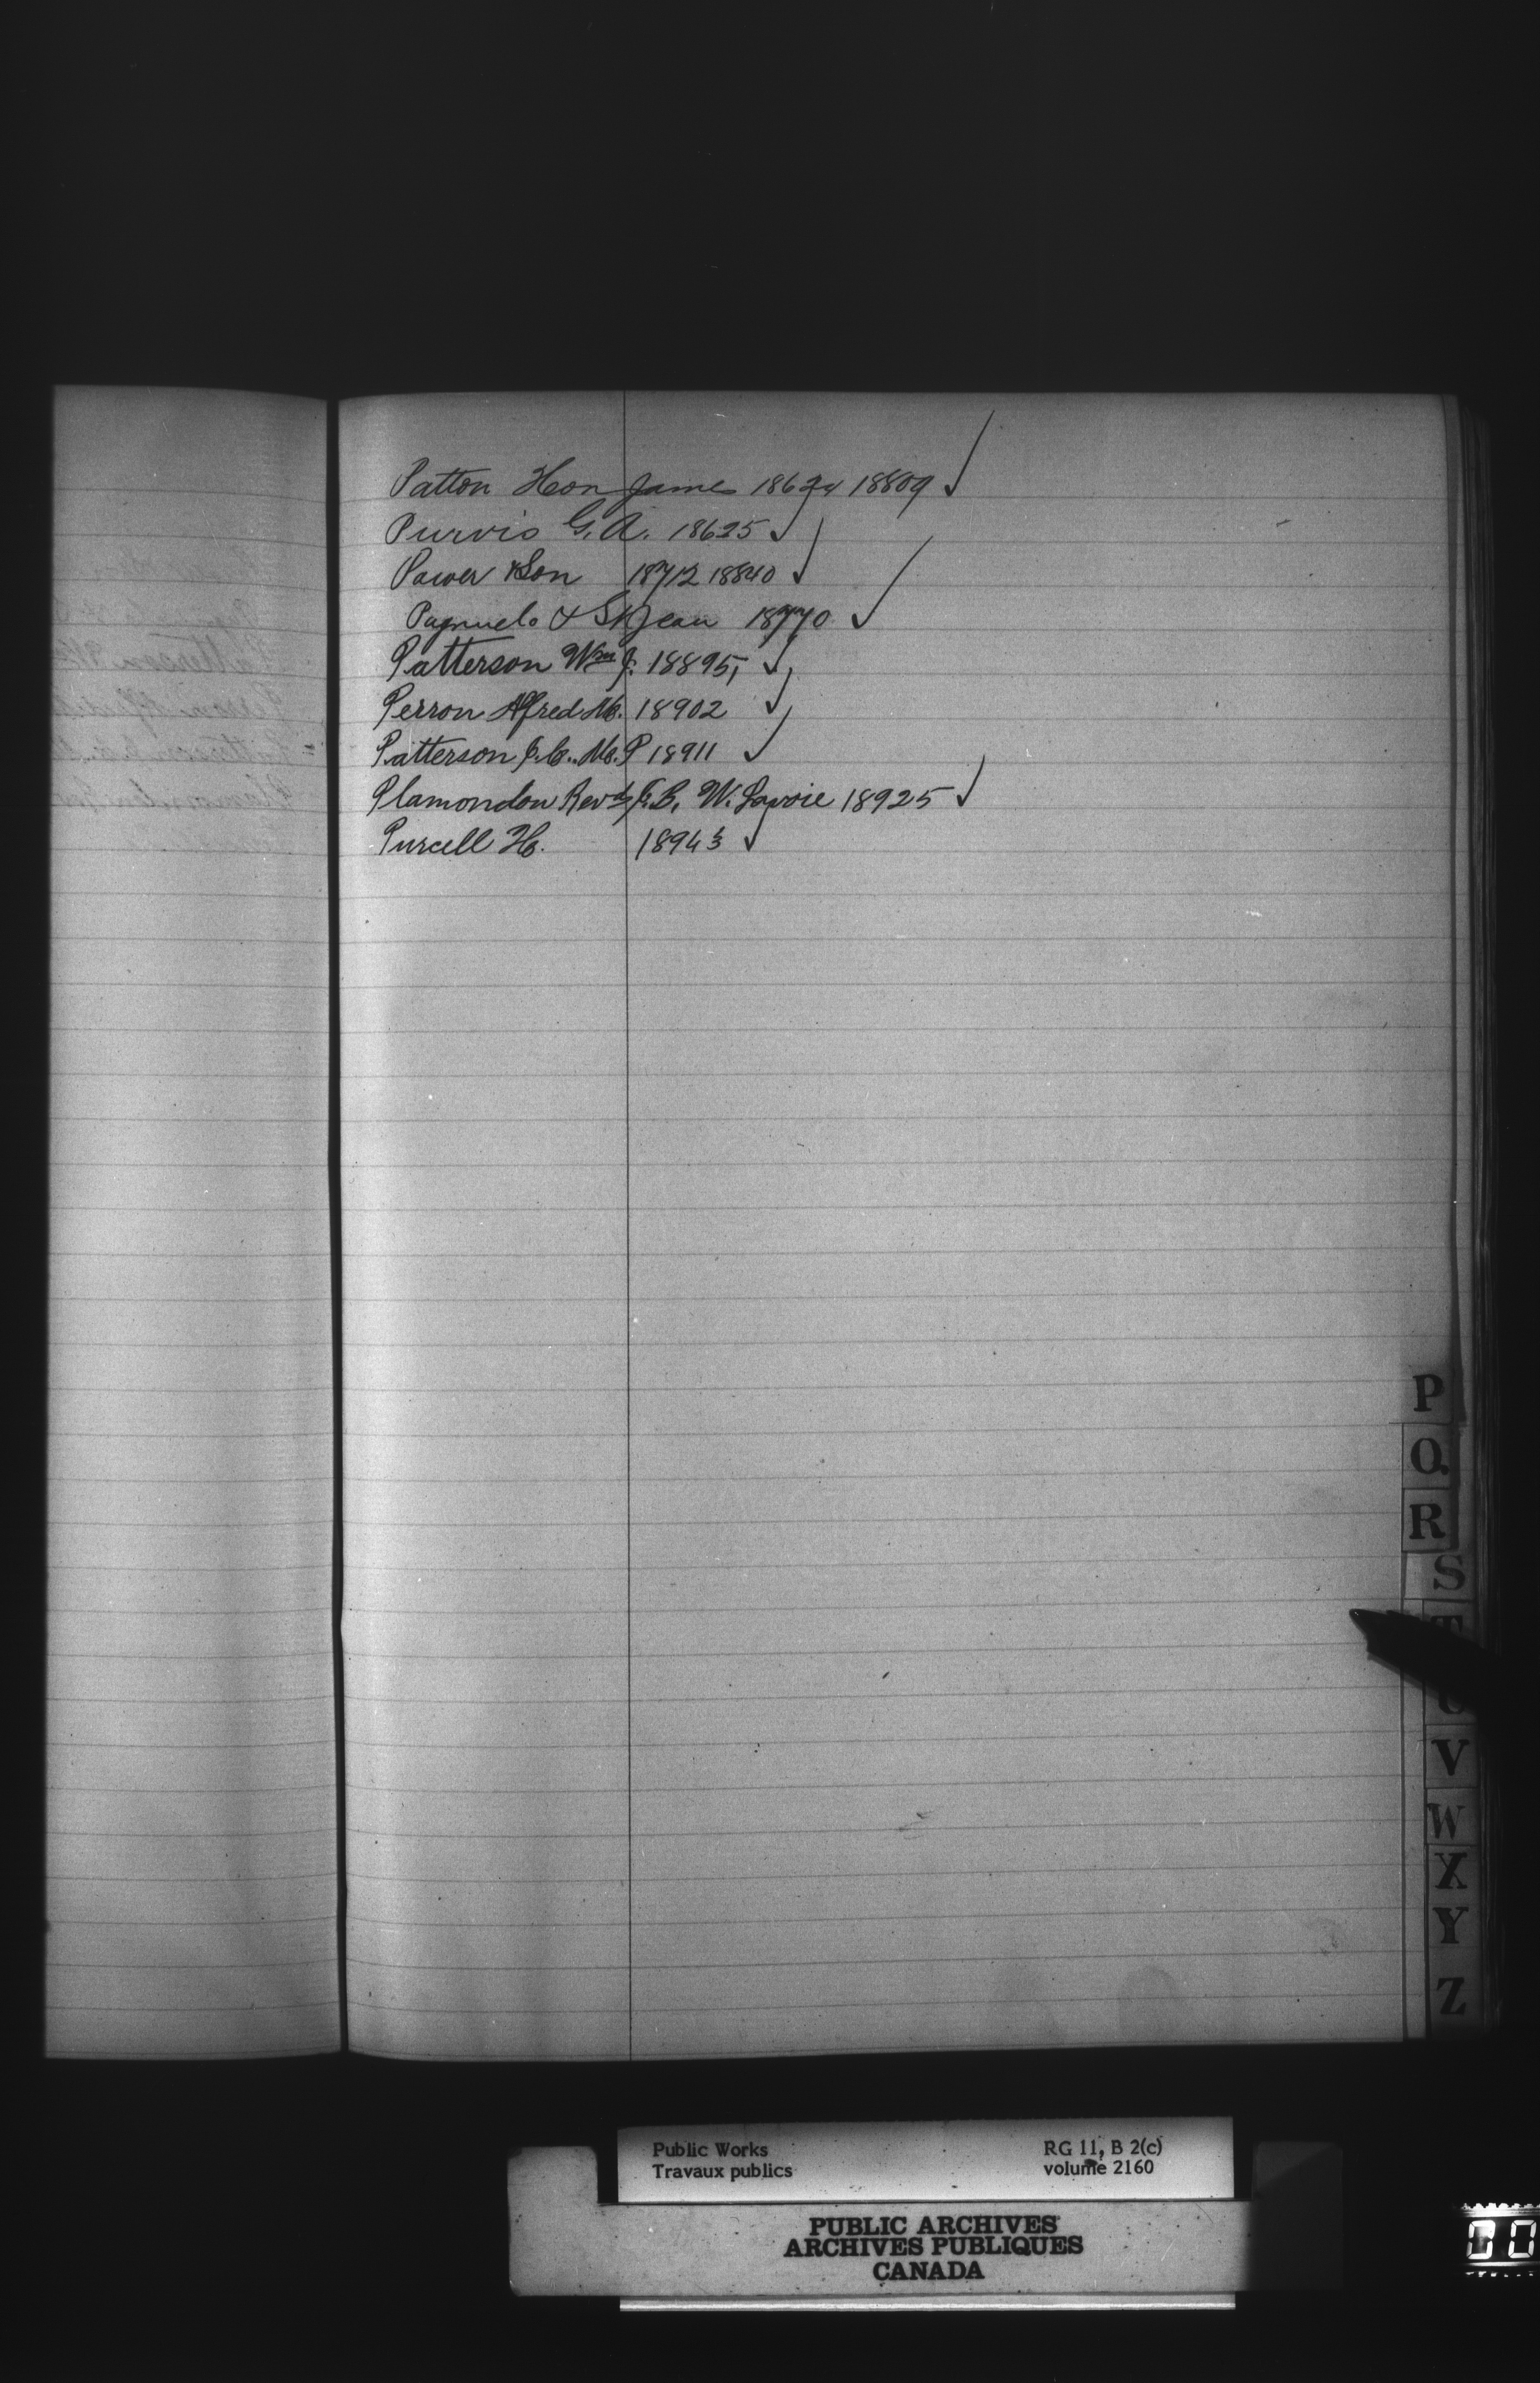 Patton Hon James 18624 18809 ✓
Purvis G. A. 18625 ✓
Power & Son 18712 18840 ✓
Pagnuelo & St Jean 18770 ✓
Patterson Wm J. 18895, ✓
Perron Alfred M. 18902 ✓
Patterson J. C. M.P 18911 ✓
Plamondon Revd J. B. W. Lavoie 18925 ✓
Purcell H. 18943 ✓
P
Q
R
S
T
U
V
W
X
Y
Z
Public Works
Travaux publics
RG 11, B 2(c)
volume 2160
PUBLIC ARCHIVES
ARCHIVES PUBLIQUES
CANADA
00